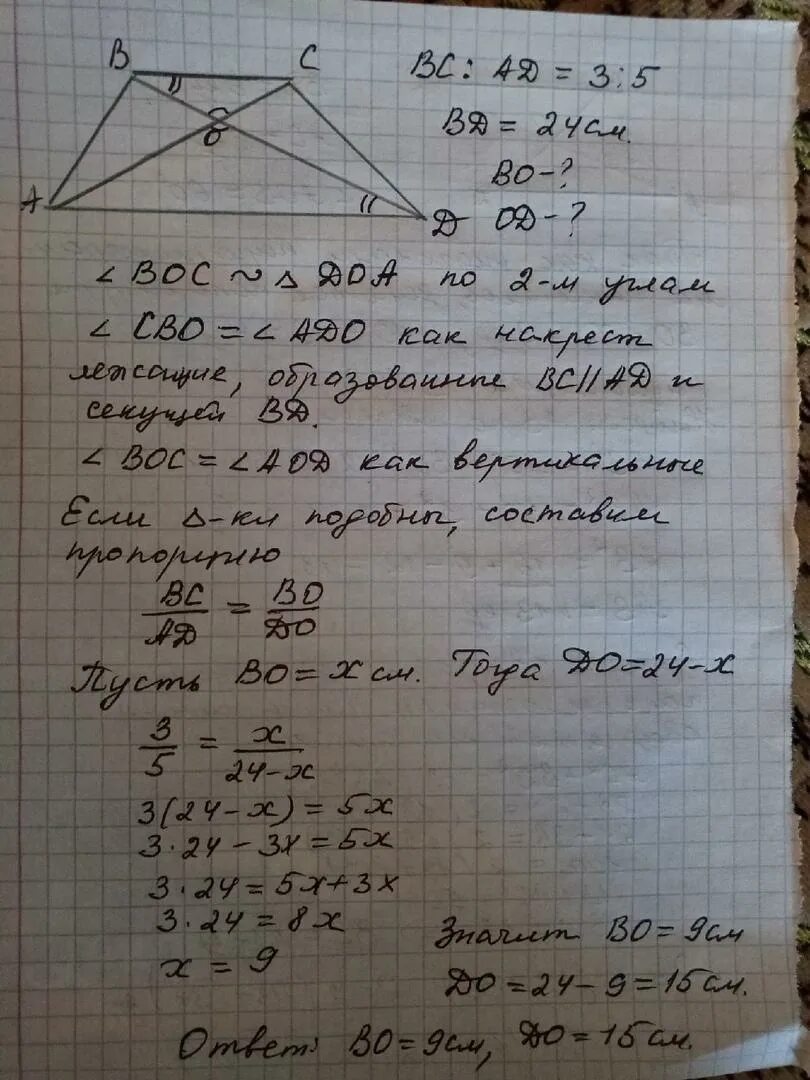 B C
BC : AD = 3:5
BD = 24 см.
BO - ?
O
A
D
OD - ?
∠ BOC ~ △ DOA по 2-м углам
∠ CBO = ∠ ADO как накрест
лежащие, образованные BC || AD и
секущей BD.
∠ BOC = ∠ AOD как вертикальные
Если △-ки подобны, составим
пропорцию
BC/AD = BO/DO
Пусть BO = x см. Тогда DO = 24 - x
3/5 = x/24-x
3(24 - x) = 5x
3 · 24 - 3x = 5x
3 · 24 = 5x + 3x
3 · 24 = 8x
x = 9
Значит BO = 9см
DO = 24 - 9 = 15 см.
Ответ: BO = 9см, DO = 15 см.